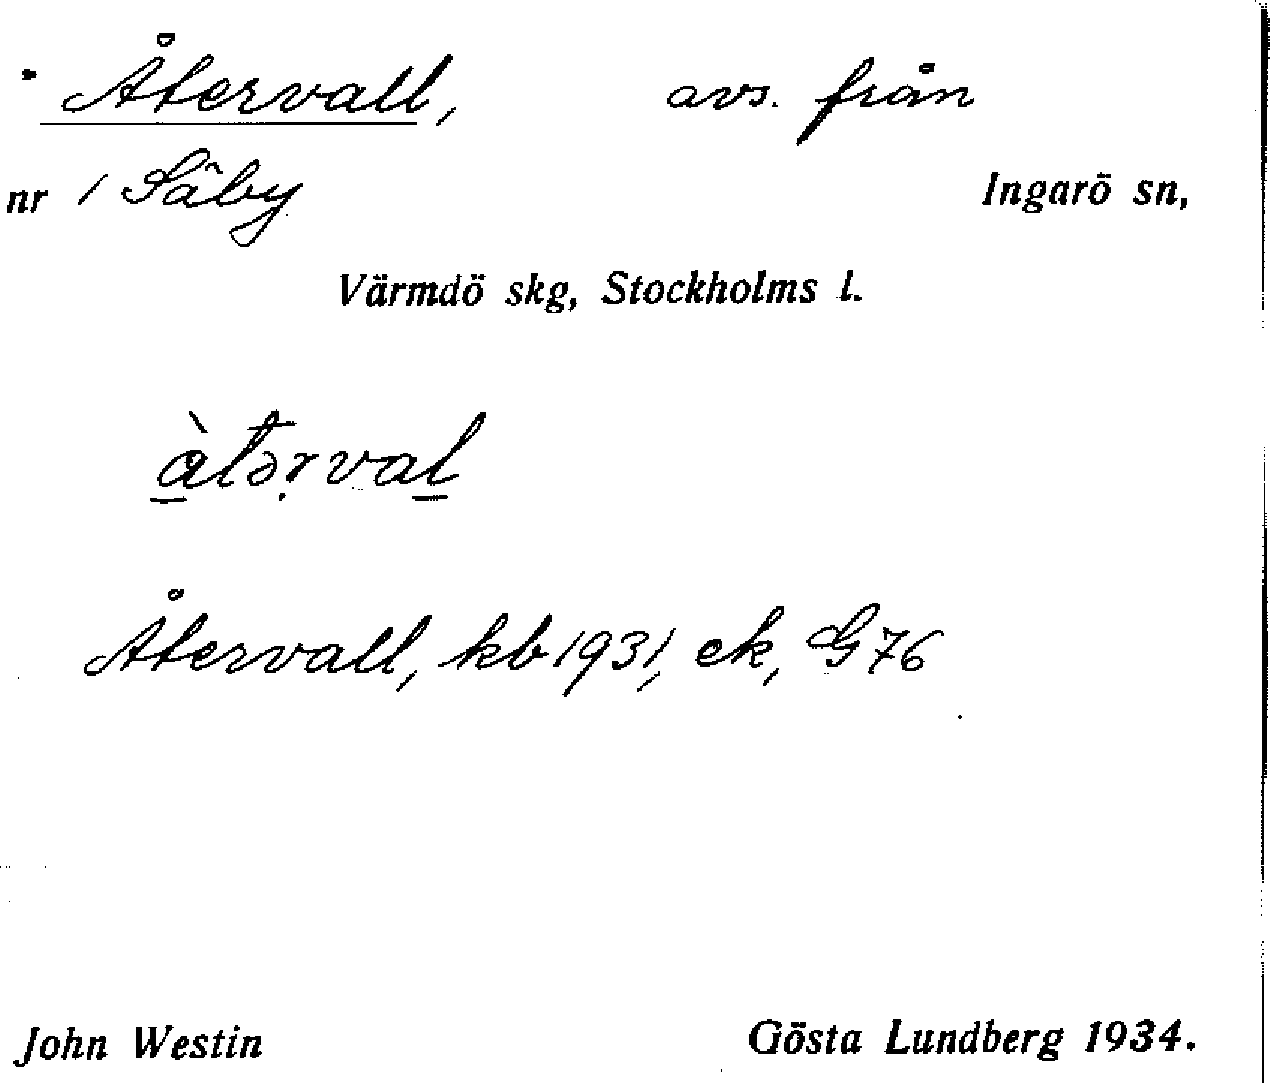 Återvall, avs. från
nr 1 Säby Ingarö sn,
Värmdö skg, Stockholms l.
àtərval
Återvall, kb 1931, ek, G 76
John Westin Gösta Lundberg 1934.